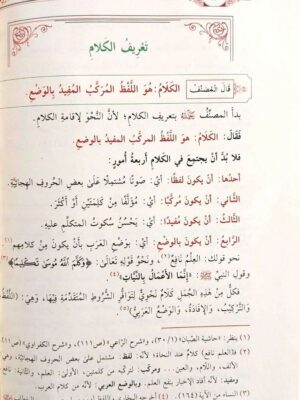 تَعْرِيفُ الكَلَامِ
قَالَ المُصَنِّفُ الكَلَامُ: هُوَ اللَّفْظُ المُرَكَّبُ المُفِيدُ بِالوَضْعِ.
بدأ المصنِّفُ بتعريفِ الكلامِ؛ لأنَّ النَّحْوَ لإقامةِ الكلامِ.
فَقَالَ: الكَلَامُ: هو اللَّفْظُ المركَّبُ المفيدُ بالوضعِ.
فلا بُدَّ أنْ يجتمعَ في الكلامِ أربعةُ أمورٍ:
أحدُها: أنْ يكونَ لفظًا: أيْ: صَوتًا مُشتملًا عَلَىٰ بعضِ الحُروفِ الهجائيَّةِ.
الثَّاني: أنْ يكونَ مُركَّبًا: أيْ: مُؤلَّفًا مِنْ كلِمَتَيْنِ أَوْ أَكْثَرَ.
الثَّالثُ: أنْ يكونَ مُفِيدًا: أيْ: يَحْسُنُ سُكوتُ المتكلِّمِ عليهِ.
الرَّابعُ: أنْ يكونَ بالوضعِ: أيْ: بوَضْعِ العَرَبِ بأنْ يكونَ مِنْ كلامِهم (١)
نحو قولك: العِلْمُ نَافِعٌ (٢)، ونحوُ قولِه تَعَالَىٰ: ﴿وَكَلَّمَ ٱللَّهُ مُوسَىٰ تَكْلِيمًا﴾ (٣)
وقولِ النبيِّ ﷺ: «إنَّما الأَعْمَالُ بِالنِّيَّاتِ» (٤)
فكلٌّ مِنْ هَذِهِ الجُمَلِ كَلَامٌ نَحْوِيٌّ لِتَوَافُرِ الشُّرُوطِ المُتَقدِّمَةِ فِيْهَا، وَهِيَ: (اللَّفْظُ
وَالتَّرْكِيْبُ، وَالإِفَادَةُ، وَالوَضْعُ العَرَبِيُّ) (٥)
(١) ينظر: «حاشية الصَّبَّان» (١/ ٣٠)، و«الشرح
(٢) فـ(العلم نافع) كلامٌ عند النحاة؛ لأنَّه: لفظ: مشتمل على بعض الحروف الهجائيَّة، وهي
الألف، واللَّام، والعين... ومركب: لتركبه من كلمتين، الأولى: العلم، والثانية: نافع
ومفيد: لأنه أفاد الإخبار بنفع العلم. وبالوضع العربي: لأنَّه من كلام العرب.